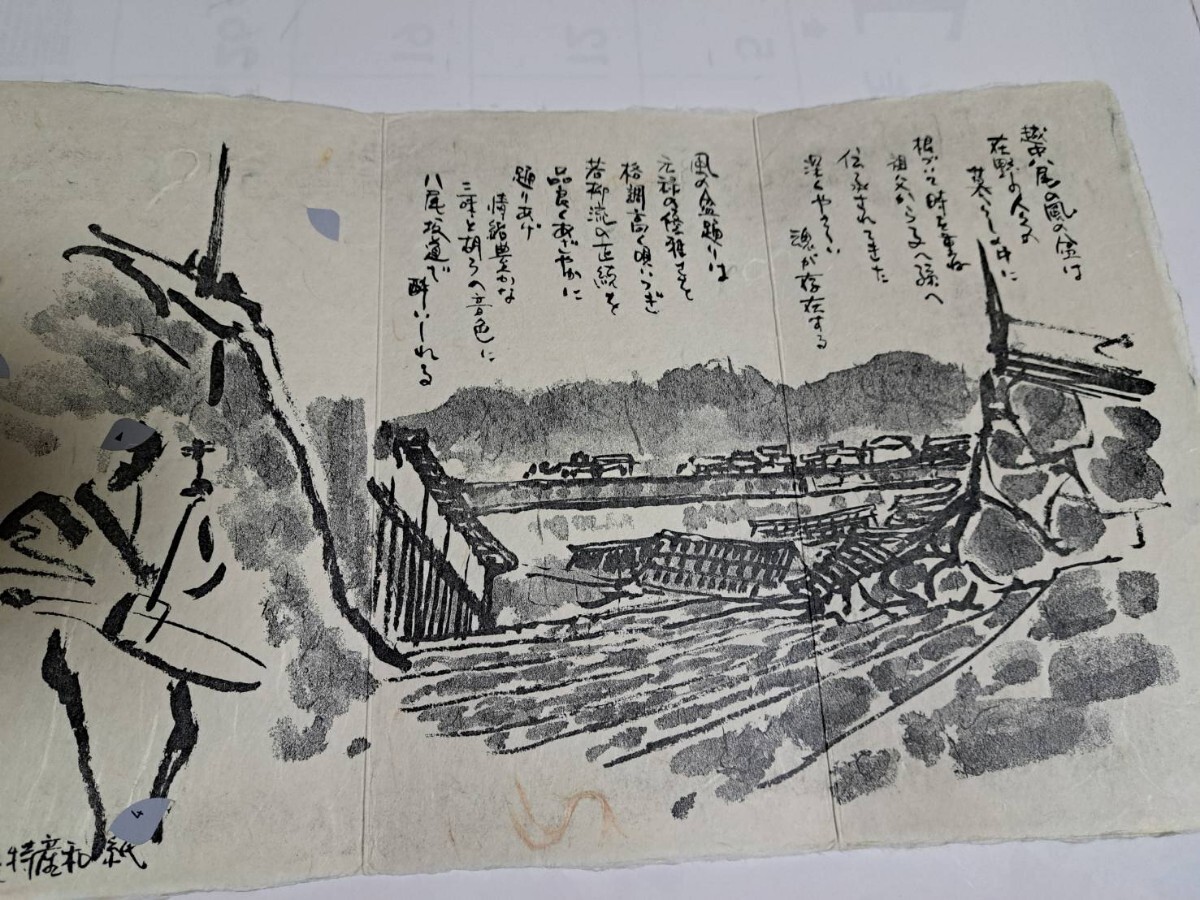 越中八尾の風の盆は
在野の人々の
暮らしの中に
根づいて時を重ね
祖父から子へ孫へ
伝承されてきた
深くやさしい
魂が存在する
風の盆踊りは
元禄の優雅さと
格調高く唄いつぎ
若柳流の正統を
品良くあざやかに
踊りあげ
情緒豊かな
三味と胡弓の音色に
八尾坂道で
酔いしれる
特産和紙
4
5
12
19
26